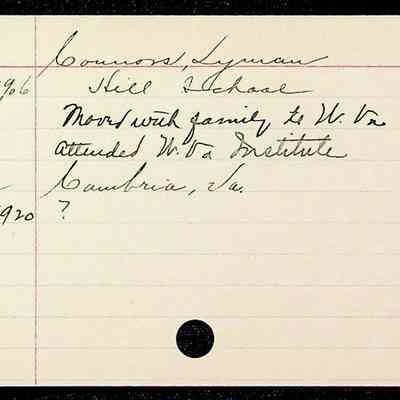 Connors, Lyman
906 Hill School
Moved with family to W. Va
Attended W. Va Institute
Cambria, Va.
1920 ?